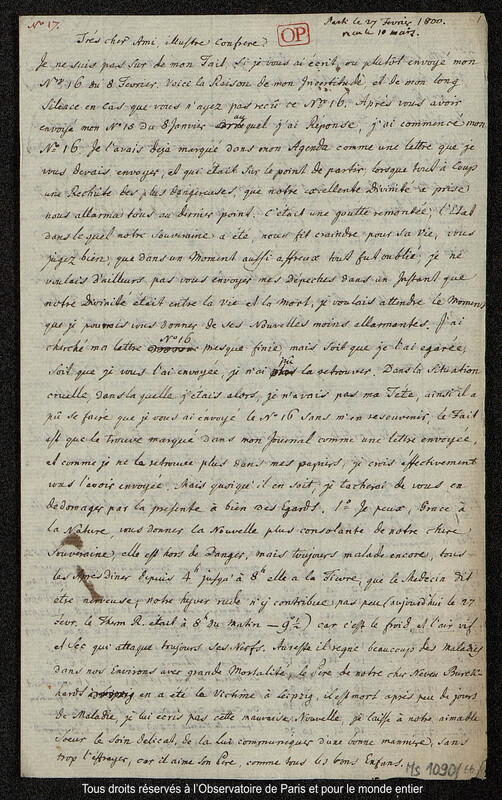 No 17.
Park le 27 Fevrier 1800.
recu le 10 mars.
1
OP
Très cher Ami, illustre Confrere!
Je ne suis pas sur de mon Fait, si je vous ai écrit, ou plutot envoyé mon
No 16 du 8 Fevrier. Voici la Raison de mon Incertitude et de mon long
Silence en Cas que vous n'ayez pas recû ce No 16. Après vous avoir
envoyé mon No 15 du 8 Janvier auquel j'ai Réponse, j'ai commencé mon
No 16. Je l'avais deja marqué dans mon Agenda comme une lettre que je
vous devais envoyer, et qui était sur le point de partir, lorsque tout à Coup
une Rechûte des plus dangereuses, que notre excellente Divinité a prise
nous allarma tous au dernier point. C'était une goutte remontée; l'Etat
dans lequel notre Souveraine a été, nous fit craindre pour sa Vie, vous
jugez bien, que dans un Moment aussi affreux tout fut oublié; je ne
voulais d'ailleurs pas vous envoyer mes Dépeches dans un Instant que
notre Divinité était entre la vie et la mort; je voulais attendre le Moment
que je pourrais vous donner de ses Nouvelles moins allarmantes. J'ai
cherché ma lettre No 16 presque finie, mais soit que je l'ai egarée,
soit que je vous l'ai envoyée, je n'ai pû la retrouver. Dans la Situation
cruelle, dans laquelle j'étais alors, je n'avais pas ma Tête, ainsi il a
pû se faire que je vous ai envoyé le No 16 sans m'en resouvenir, le Fait
est que le trouve marqué dans mon Journal comme une lettre envoyée,
et comme je ne la retrouve plus dans mes papiers, je crois effectivement
vous l'avoir envoyée. Mais quoiqu'il en soit, je tacherai de vous en
dedomager par la presente à bien des Egards. 1o Je peux, Grace à
la Nature, vous donner la Nouvelle plus consolante de notre chere
Souveraine; elle est hors de Danger, mais toujours malade encore, tous
les Apresdiner depuis 4h jusqu'à 8h elle a la Fievre, que le Medecin dit
etre nerveuse; notre hyver rude n'y contribue pas peu (aujourdhui le 27
fevr. le Therm R. était à 8h du Matin — 9°½) car c'est le froid et l'air vif
et sec qui attaque toujours ses Nerfs. Aureste il regne beaucoup des maladies
dans nos Environs avec grande Mortalité, le Pere de notre cher Neveu Burck-
hardt en a été la Victime à Leipzig, il est mort après peu de jours
de Maladie, je lui écris pas cette mauvaise Nouvelle, je laisse à notre aimable
Soeur le soin delicat, de la lui communiquer d'une bonne manière, sans
trop l'effrayer, car il aime son Père, comme tous les bons Enfans.
Ms 1090/
Tous droits réservés à l'Observatoire de Paris et pour le monde entier